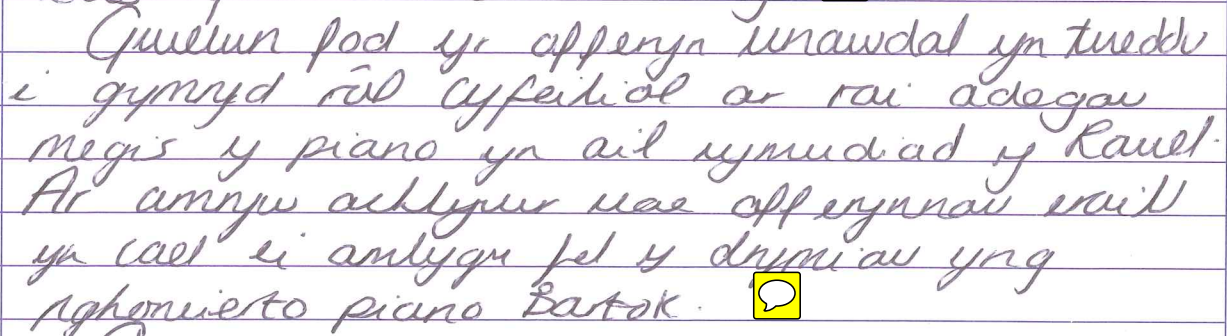 Gwelwn fod yr offeryn unawdal yn tueddu
i gymryd rôl cyfeiliol ar rai adegau
megis y piano yn ail symudiad y Ravel.
Ar amryw achlysur mae offerynnau eraill
yn cael ei amlygu fel y drymiau yng
nghoncerto piano Bartok.